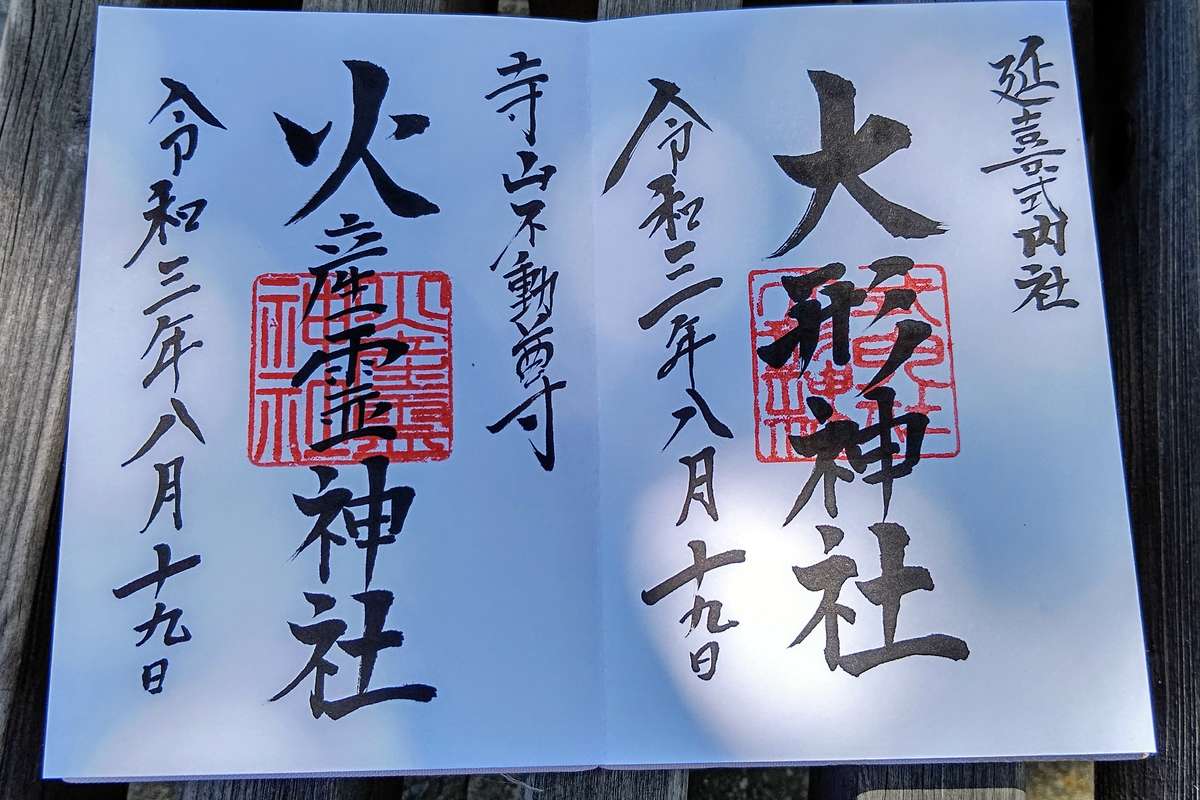 延喜式内社
大形神社
令和三年八月十九日
寺山不動尊
火産霊神社
火産霊神社
令和三年八月十九日